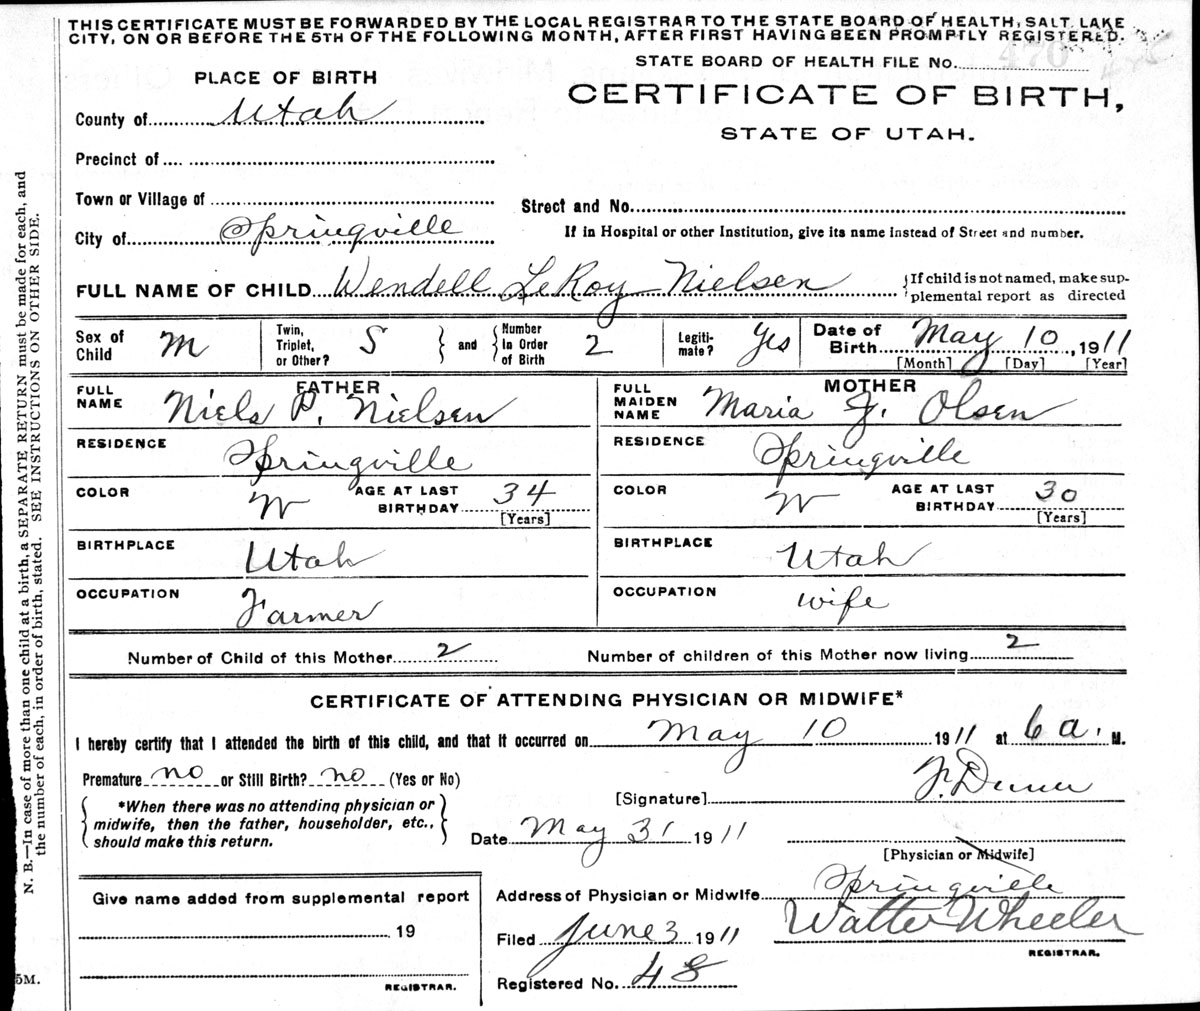 THIS CERTIFICATE MUST BE FORWARDED BY THE LOCAL REGISTRAR TO THE STATE BOARD OF HEALTH, SALT LAKE
CITY, ON OR BEFORE THE 5TH OF THE FOLLOWING MONTH, AFTER FIRST HAVING BEEN PROMPTLY REGISTERED.
STATE BOARD OF HEALTH FILE No. 470
PLACE OF BIRTH
CERTIFICATE OF BIRTH,
STATE OF UTAH.
County of Utah
Precinct of
Town or Village of
Street and No.
City of Springville
If in Hospital or other Institution, give its name instead of Street and number.
FULL NAME OF CHILD Wendell LeRoy Nielsen {If child is not named, make sup-
plemental report as directed
Sex of Child M
Twin, Triplet, or Other? S } and { Number In Order of Birth 2
Legiti-mate? Yes
Date of Birth May 10, 1911
[Month] [Day] [Year]
FATHER
FULL NAME Niels P. Nielsen
RESIDENCE Springville
COLOR W AGE AT LAST BIRTHDAY 34
[Years]
BIRTHPLACE Utah
OCCUPATION Farmer
MOTHER
FULL MAIDEN NAME Maria J. Olsen
RESIDENCE Springville
COLOR W AGE AT LAST BIRTHDAY 30
[Years]
BIRTHPLACE Utah
OCCUPATION wife
Number of Child of this Mother 2 Number of children of this Mother now living 2
CERTIFICATE OF ATTENDING PHYSICIAN OR MIDWIFE*
I hereby certify that I attended the birth of this child, and that it occurred on May 10 1911 at 6 a. M.
Premature no or Still Birth? no (Yes or No)
{ *When there was no attending physician or
midwife, then the father, householder, etc.,
should make this return. }
[Signature] F.
Date May 31 1911
[Physician or Midwife]
Address of Physician or Midwife Springville
Filed June 3 1911 Walter Wheeler
REGISTRAR.
Registered No. 48
Give name added from supplemental report
19
REGISTRAR.
N. B.—In case of more than one child at a birth, a SEPARATE RETURN must be made for each, and
the number of each, in order of birth, stated. SEE INSTRUCTIONS ON OTHER SIDE.
5M.